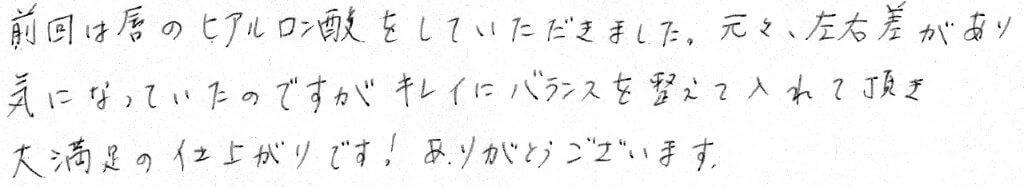 前回は唇のヒアルロン酸をしていただきました。元々、左右差があり
気になっていたのですがキレイにバランスを整えて入れて頂き
大満足の仕上がりです！ありがとうございます。